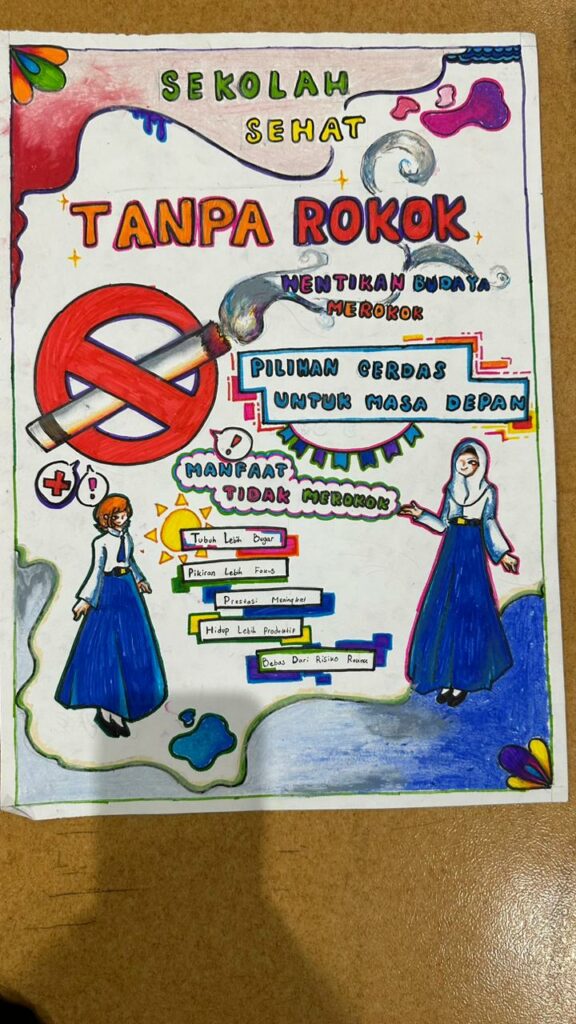 SEKOLAH
SEHAT
TANPA ROKOK
HENTIKAN BUDAYA
MEROKOK
PILIHAN CERDAS
UNTUK MASA DEPAN
!
MANFAAT
TIDAK MEROKOK
!
Tubuh Lebih Bugar
Pikiran Lebih Fokus
Prestasi Meningkat
Hidup Lebih Produktif
Bebas Dari Risiko